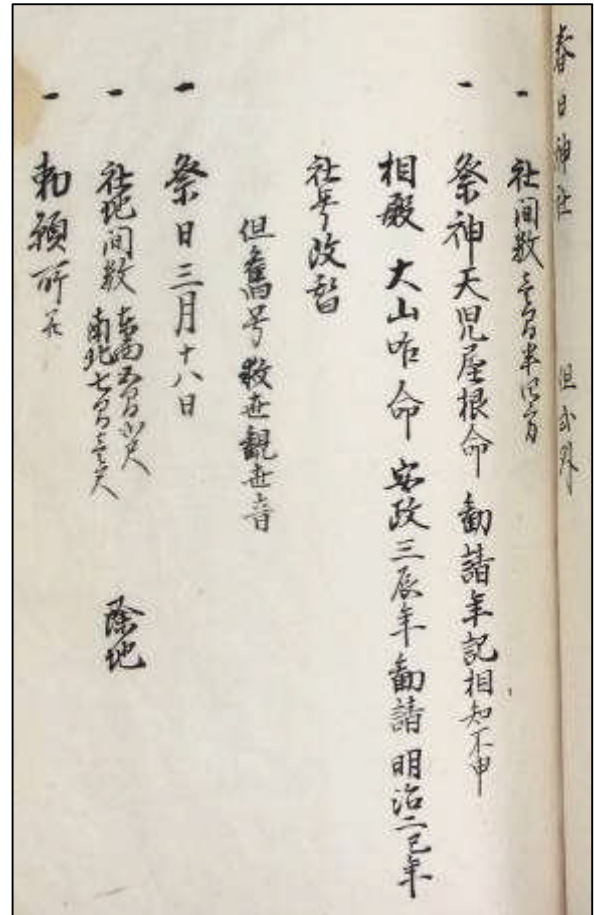 春日神社 但式外
一 社間数 壱間半四方
一 祭神天児屋根命 勧請年記相知不申
相殿 大山咋命 安政三辰年勧請 明治二巳年
社号改替
但舊号救世観世音
一 祭日三月十八日
一 社地間数 東西五間六尺 南北七間壱尺 除地
一 勅願所